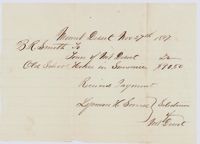 Mount Desert Nov 27th 1897
B. R. Smith To
Town of Mt Desert Dr
Old School House in $9.50
Received Payment
Lyman H. Somes Selectmen
of
Mt Desert